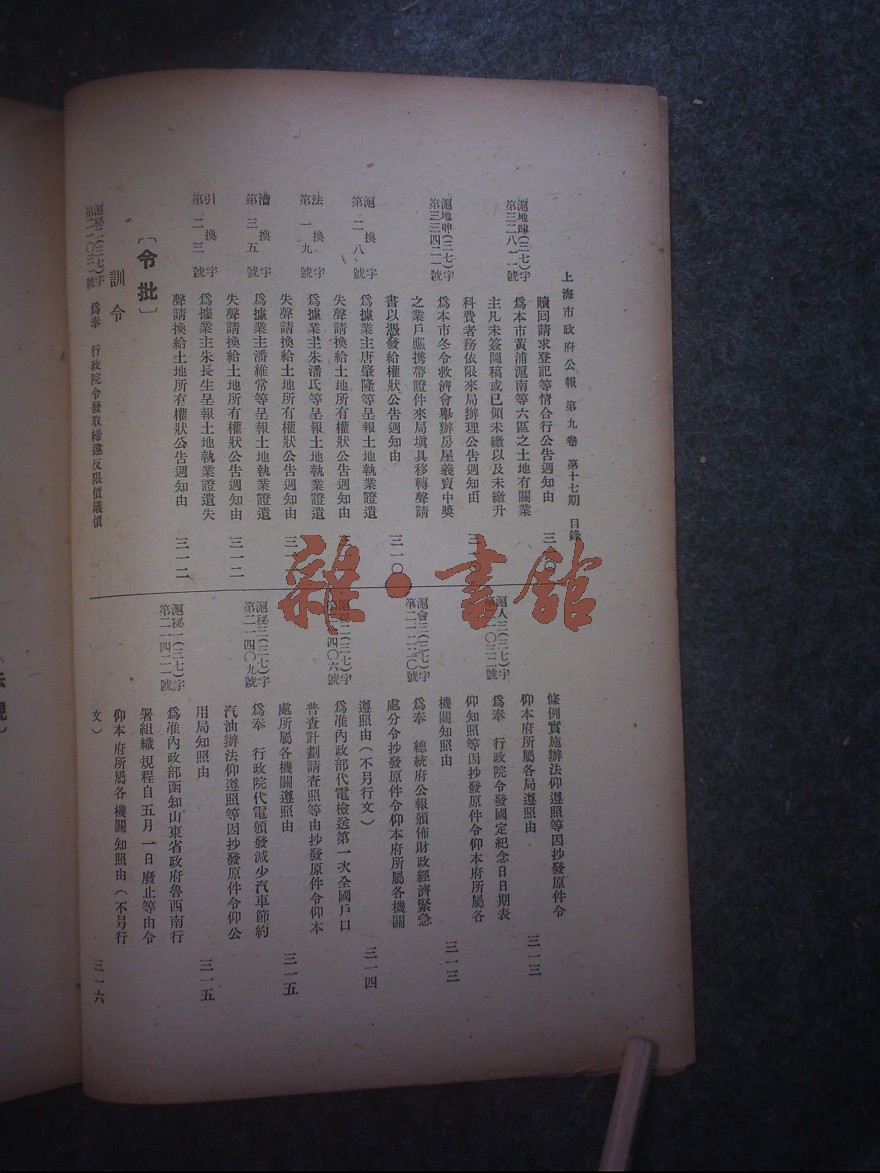 上海市政府公報 第九卷 第十七期 目錄
贖回請求登記等情合行公告週知由
滬地 (三七)字
第三二八一一號
爲本市黃浦滬南等六區之土地有關業
主凡未簽圖稿或已領未繳以及未繳升
科費者務依限來局辦理公告週知由
滬地 (三七)字
第三三四二一號
爲本市冬令救濟會舉辦房屋義賣中獎
之業戶應携帶證件來局塡具移轉聲請
書以憑發給權狀公告週知由
三一〇
滬換字
第二八號
爲據業主唐肇隆等呈報土地執業證遺
失聲請換給土地所有權狀公告週知由
法換字
第一九號
爲據業主朱潘氏等呈報土地執業證遺
失聲請換給土地所有權狀公告週知由
漕換字
第三五號
爲據業主潘維常等呈報土地執業證遺
失聲請換給土地所有權狀公告週知由
三一二
引換字
第二三號
爲據業主朱長生呈報土地執業證遺失
聲請換給土地所有權狀公告週知由
三一二
〔令批〕
訓令
滬秘二(三七)字
爲奉 行政院令發取締違反限價議價
條例實施辦法仰遵照等因抄發原件令
仰本府所屬各局遵照由
三一三
滬人三(三七)字
爲奉 行政院令發國定紀念日日期表
仰知照等因抄發原件令仰本府所屬各
機關知照由
三一三
滬會三(三七)字
爲奉 總統府公報頒佈財政經濟緊急
處分令抄發原件令仰本府所屬各機關
遵照由(不另行文)
三一四
爲准內政部代電檢送第一次全國戶口
普查計劃請查照等由抄發原件令仰本
處所屬各機關遵照由
三一五
滬秘三(三七)字
第二一四〇九號
爲奉 行政院代電頒發減少汽車節約
汽油辦法仰遵照等因抄發原件令仰公
用局知照由
三一五
滬秘一(三七)字
第二一四二一號
爲准內政部函知山東省政府魯西南行
署組織規程自五月一日廢止等由令
仰本府所屬各機關知照由(不另行
文)
三一六
雜·書館